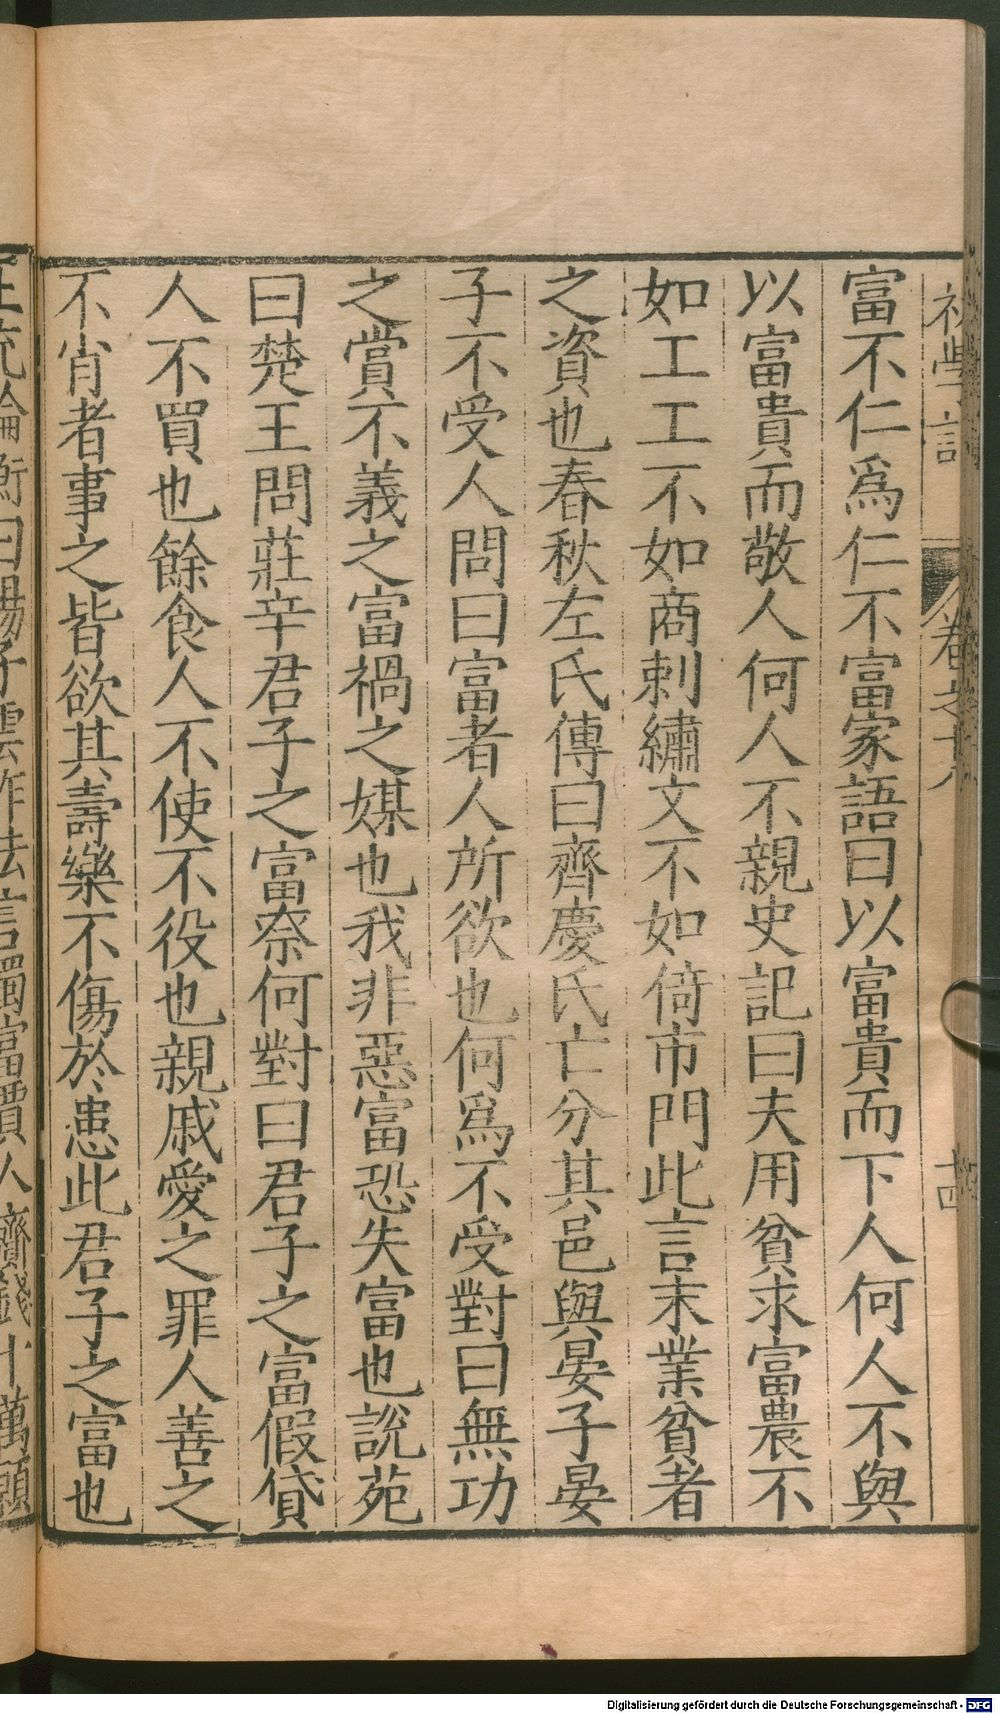 初學記 卷之十八 十四
富不仁爲仁不富家語曰以富貴而下人何人不與
以富貴而敬人何人不親史記曰夫用貧求富農不
如工工不如商刺繡文不如倚市門此言末業貧者
之資也春秋左氏傳曰齊慶氏亡分其邑與晏子晏
子不受人問曰富者人所欲也何爲不受對曰無功
之賞不義之富禍之媒也我非惡富恐失富也說苑
曰楚王問莊辛君子之富奈何對曰君子之富假貸
人不買也餘食人不使不役也親戚愛之罪人善之
不肖者事之皆欲其壽樂不傷於患此君子之富也
王充論衡曰揚子雲作法言蜀富賈人齎錢十萬願
Digitalisierung gefördert durch die Deutsche Forschungsgemeinschaft - DFG